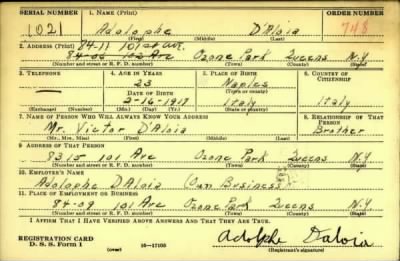 SERIAL NUMBER 1. NAME (Print) ORDER NUMBER
1021 Adolphe D'Aloia 748
(First) (Middle) (Last)
2. ADDRESS (Print) 84-11 101st ave.
102 Ave Ozone Park Queens N.Y
(Number and street or R. F. D. number) (Town) (County) (State)
3. TELEPHONE 4. AGE IN YEARS 5. PLACE OF BIRTH 6. COUNTRY OF CITIZENSHIP
— 23 Naples
DATE OF BIRTH (Town or county)
2-16-1917 Italy Italy
(Exchange) (Number) (Mo.) (Day) (Yr.) (State or country)
7. NAME OF PERSON WHO WILL ALWAYS KNOW YOUR ADDRESS 8. RELATIONSHIP OF THAT PERSON
Mr. Victor D'Aloia Brother
(Mr., Mrs., Miss) (First) (Middle) (Last)
9. ADDRESS OF THAT PERSON
8315 101 Ave Ozone Park Queens N.Y
(Number and street or R. F. D. number) (Town) (County) (State)
10. EMPLOYER'S NAME
Adolphe D'Aloia (Own Business)
11. PLACE OF EMPLOYMENT OR BUSINESS
84-09 101 Ave Ozone Park Queens N.Y
(Number and street or R. F. D. number) (Town) (County) (State)
I AFFIRM THAT I HAVE VERIFIED ABOVE ANSWERS AND THAT THEY ARE TRUE.
REGISTRATION CARD
D. S. S. Form 1 (over) 16-17105
Adolphe Daloia
(Registrant's signature)